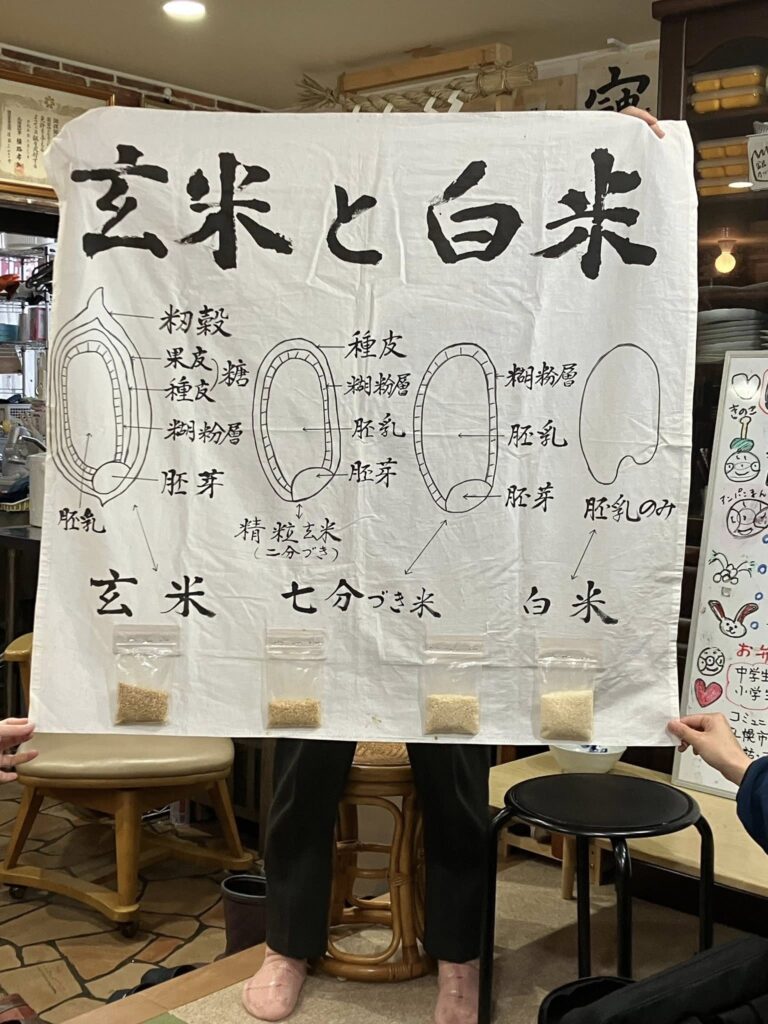 玄米と白米
籾殻
果皮
種皮
糖
糊粉層
胚芽
胚乳
玄米
種皮
糊粉層
胚乳
胚芽
精粒玄米
(二分づき)
糊粉層
胚乳
胚芽
七分づき米
胚乳のみ
白米
きのこ
お弁
中学生
小学生
コミュニ
札幌市